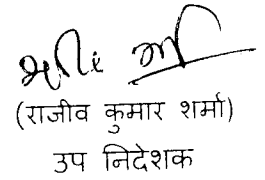 (राजीव कुमार शर्मा)
उप निदेशक